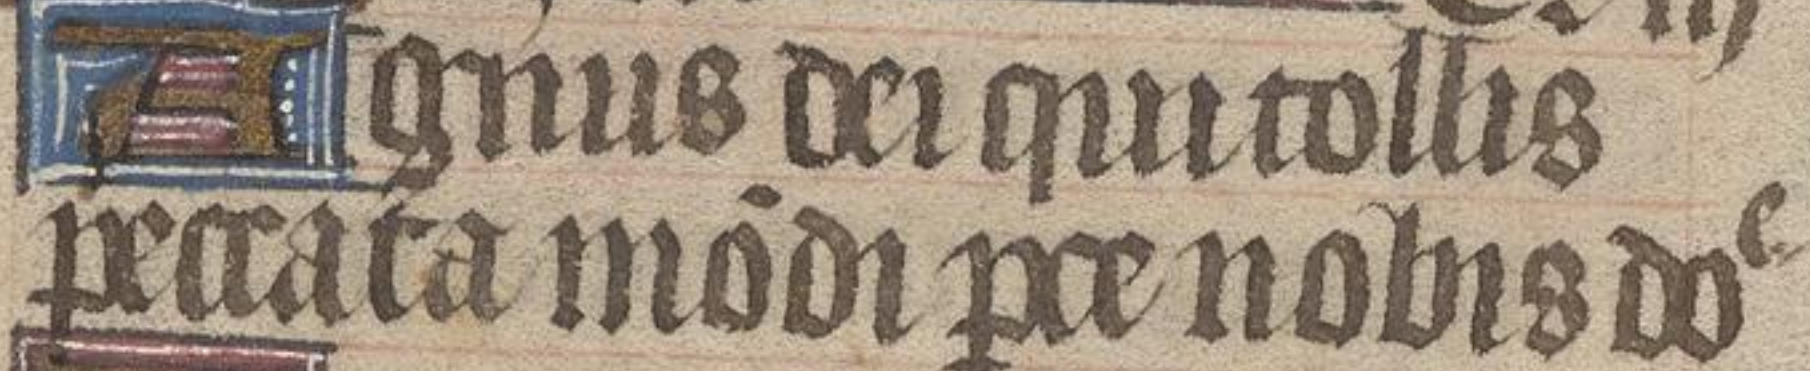 Agnus dei qui tollis
peccata mōdi pce nobis doᵉ